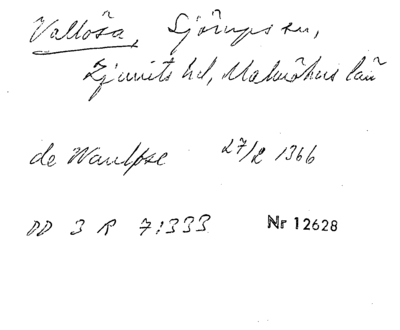 Vallösa, Sjörups sn,
Ljunits hd, Malmöhus län
de Wanlöse 27/2 1366
DD 3 R 7:333 Nr 12628